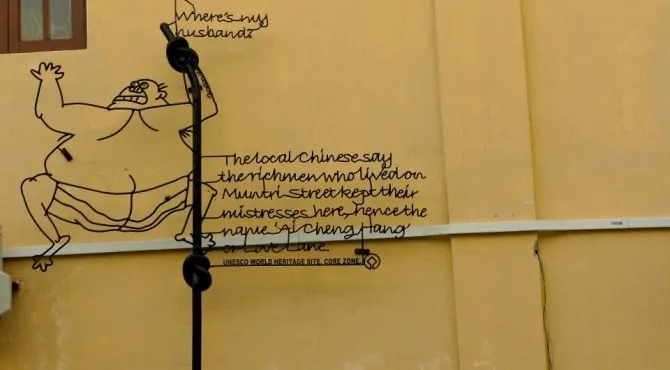 Where's my
husband?
The local Chinese say
the rich men who lived on
Muntri Street kept their
mistresses here, hence the
name 'Ai Cheng Hang'
or Love Lane.
UNESCO WORLD HERITAGE SITE. CORE ZONE.